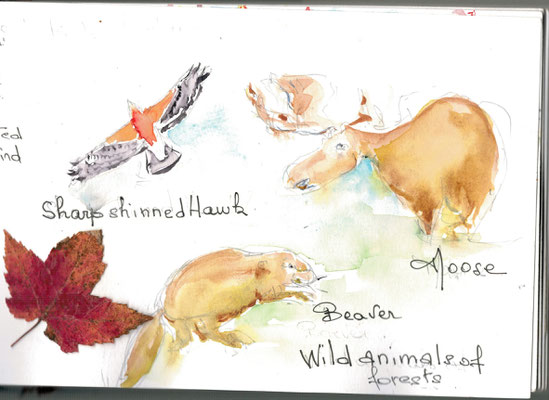 Sharp shinned Hawk
Moose
Beaver
Wild animals of
forests